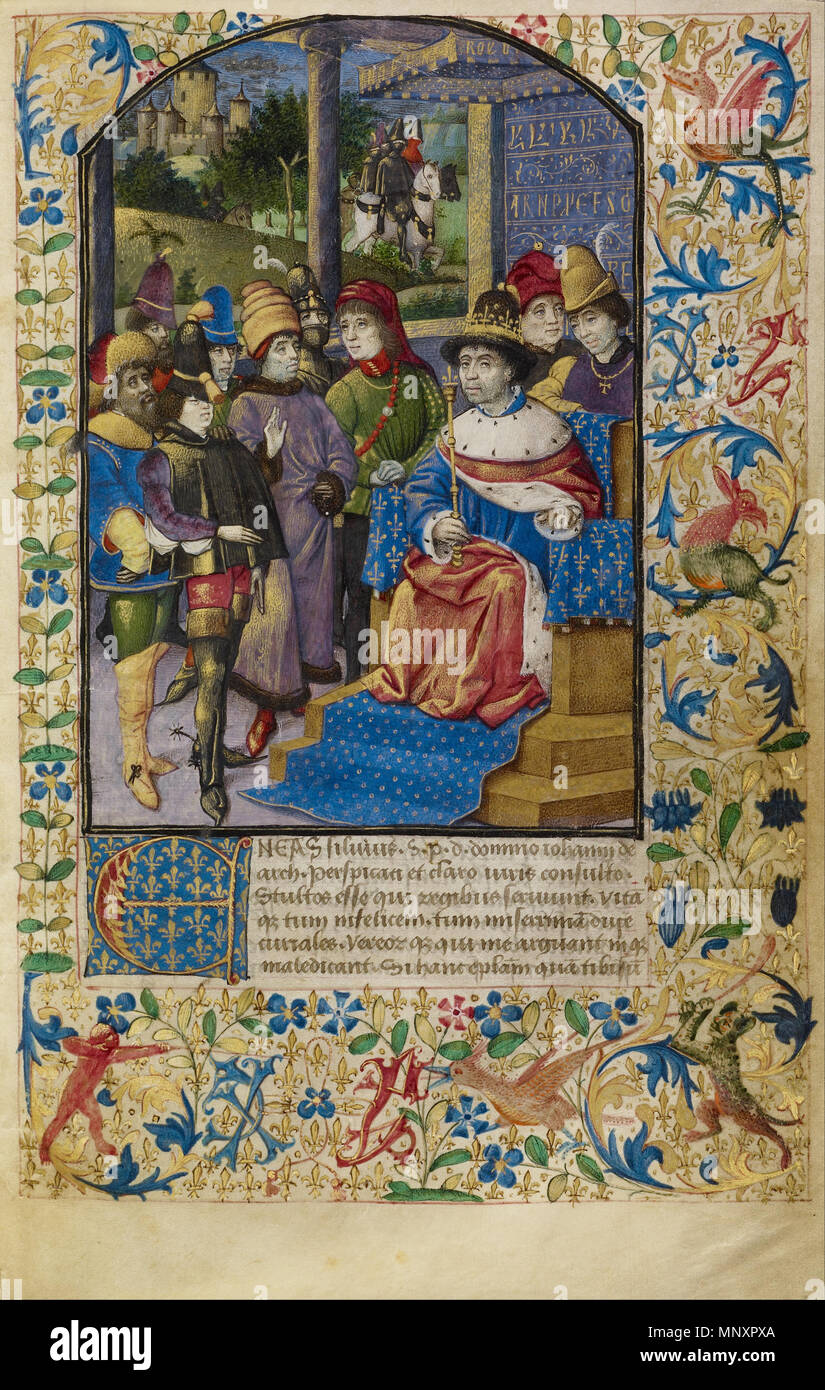 ROY D
ARNPACFSO
PE
NEAS siluius. S. p. d. domino iohanni de
arch. perspicaci et claro iuris consulto.
Stultos esse qui regibus seruiunt. vitā
qȝ tum infelicem. tum miserrimā duce
curiales. Vereor qȝ qui me arguant in qȝ
maledicant. Si hanc eplam̄ quā tibi su
alamy
Image ID: MNXPXA
www.alamy.com